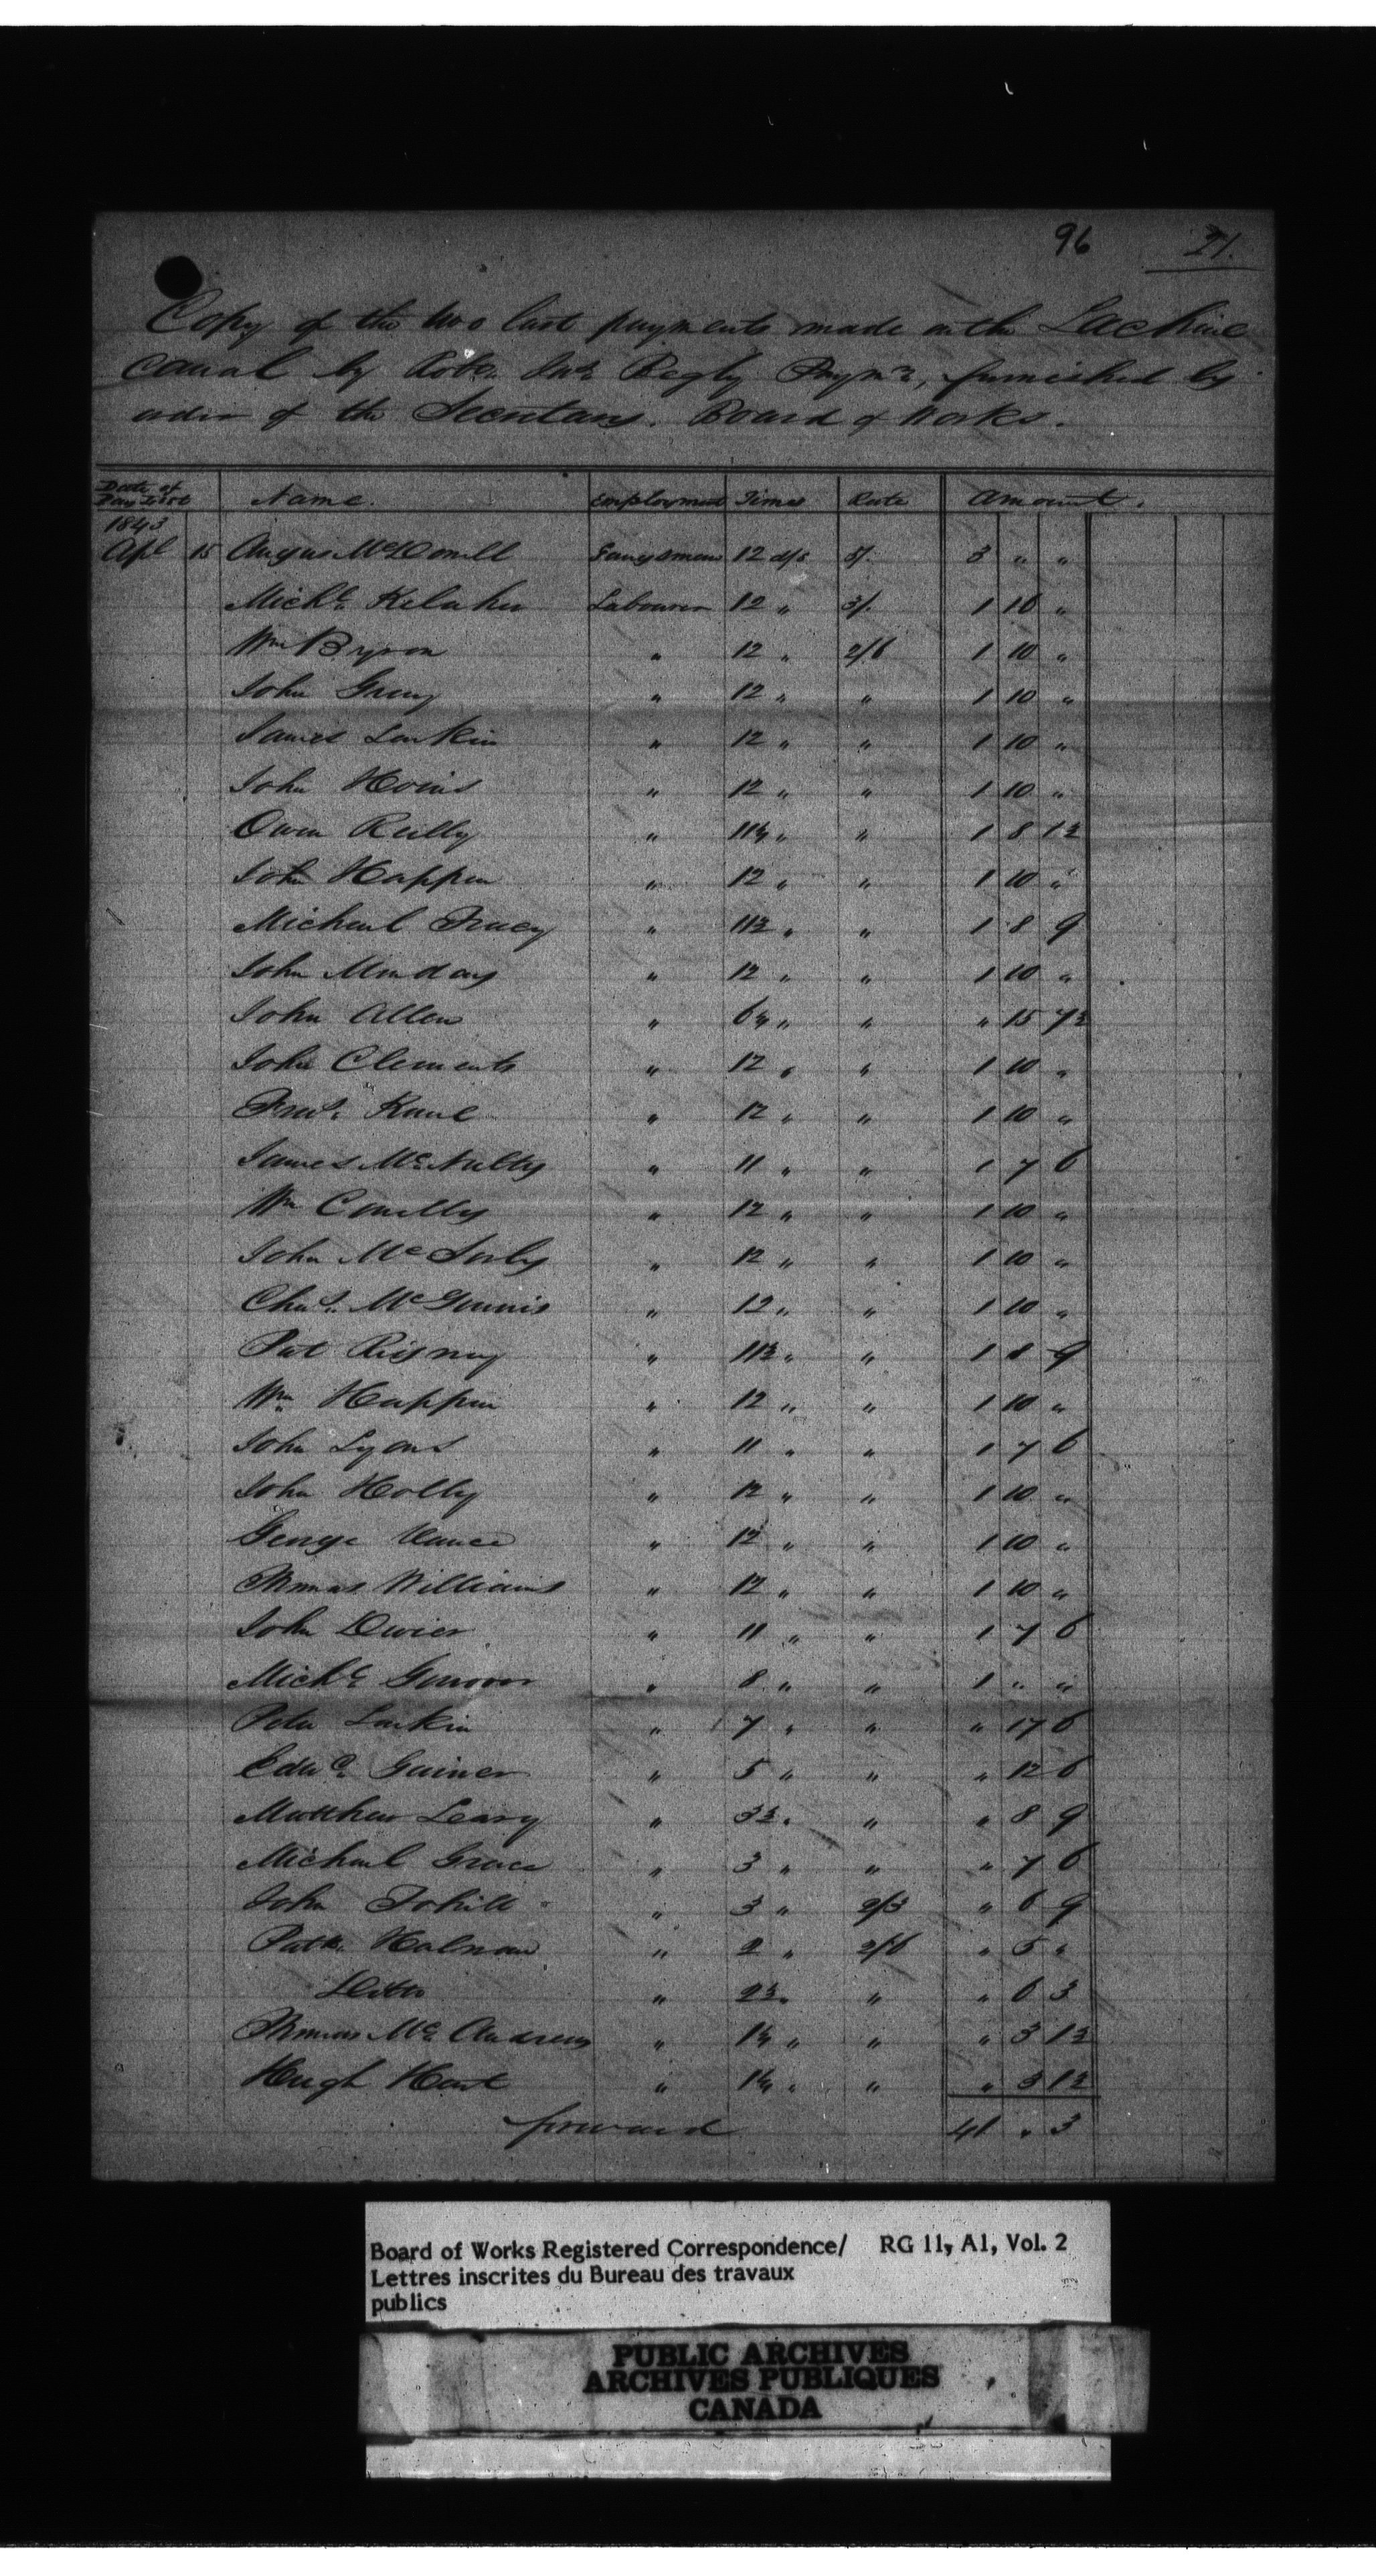 96 21.
Copy of the two last payments made on the Lachine
Canal by Robt. Begly Paymr., furnished by
order of the Secretary. Board of Works.
Date of Pay List Name. Employment Time Rate Amount.
1843
Apl 15 Angus McDonell Gangsman 12 d/s 5/. 3 " "
Michl. Kelaher Labourer 12 " 3/. 1 16 "
Wm Byron " 12 " 2/6 1 10 "
John Gray " 12 " " 1 10 "
James Larkin " 12 " " 1 10 "
John " 12 " " 1 10 "
Owen Reilly " 11¼ " " 1 8 1½
John Happin " 12 " " 1 10 "
Michael Tracy " 11½ " " 1 8 9
John Munday " 12 " " 1 10 "
John Allen " 6¼ " " " 15 7½
John Clements " 12 " " 1 10 "
Fras. Kane " 12 " " 1 10 "
James McNulty " 11 " " 1 7 6
Wm Conelly " 12 " " 1 10 "
John McSorly " 12 " " 1 10 "
Chas. McGinnis " 12 " " 1 10 "
Pat " 11½ " " 1 8 9
Wm Happin " 12 " " 1 10 "
John Lyons " 11 " " 1 7 6
John Holly " 12 " " 1 10 "
George Vance " 12 " " 1 10 "
Thomas Williams " 12 " " 1 10 "
John Dwier " 11 " " 1 7 6
Michl. " 8 " " 1 " "
Peter Larkin " 7 " " " 17 6
Edwd. Gainer " 5 " " " 12 6
Matthew Leary " 3½ " " " 8 9
Michael Grace " 3 " " " 7 6
John Tohill " 3 " 2/3 " 6 9
Patk. Halnan " 2 " 2/6 " 5 "
Ditto " 2½ " " " 6 3
Thomas Mc. Andrew " 1¼ " " " 3 1½
Hugh Hart " 1¼ " " " 3 1½
forward 41 " 3
Board of Works Registered Correspondence/ RG 11, A1, Vol. 2
Lettres inscrites du Bureau des travaux
publics
PUBLIC ARCHIVES
ARCHIVES PUBLIQUES
CANADA